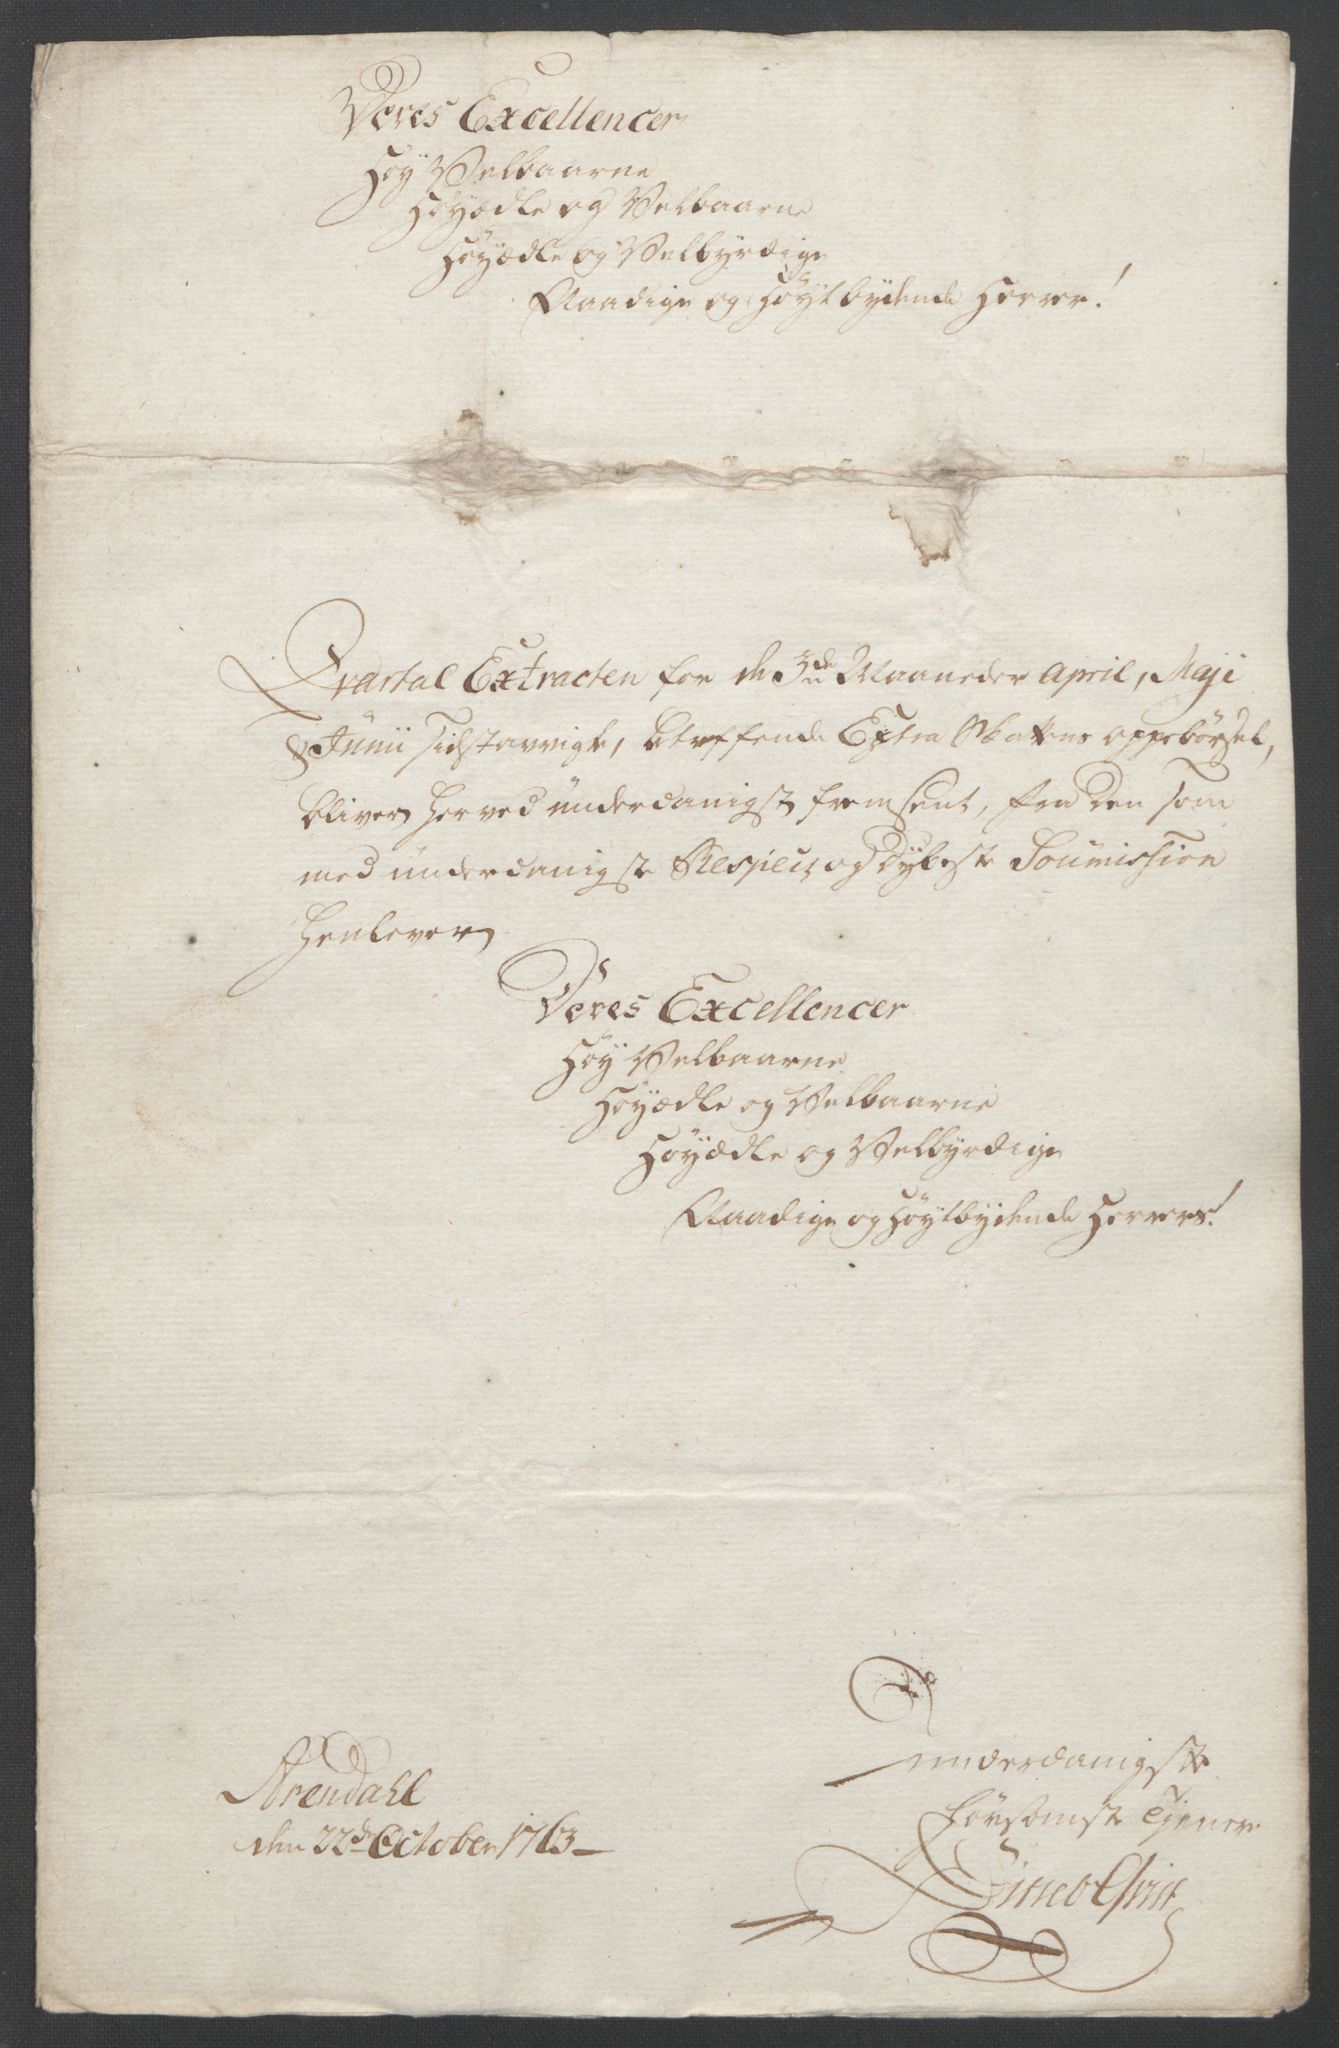 Deres Excellencer
Høy Velbaarne
Høyædle og Velbaarne
Høyædle og Velbyrdige
Naadige og Høyt bydende Herrer!
Qvartal Extracten for de 3de Maaneder April, Maji
& Junii sidstavvigte, betreffende Extra Skattens oppebørsel,
bliver herved underdanigst fremsent, fra den som
med underdanigste Respect og dybeste Soumission
henlever
Deres Excellencer
Høy Velbaarne
Høyædle og Velbaarne
Høyædle og Velbyrdige
Naadige og Høytbydende Herrers!
Arendahl
den 22de October 1763
underdanigste
hørsomste Tjener